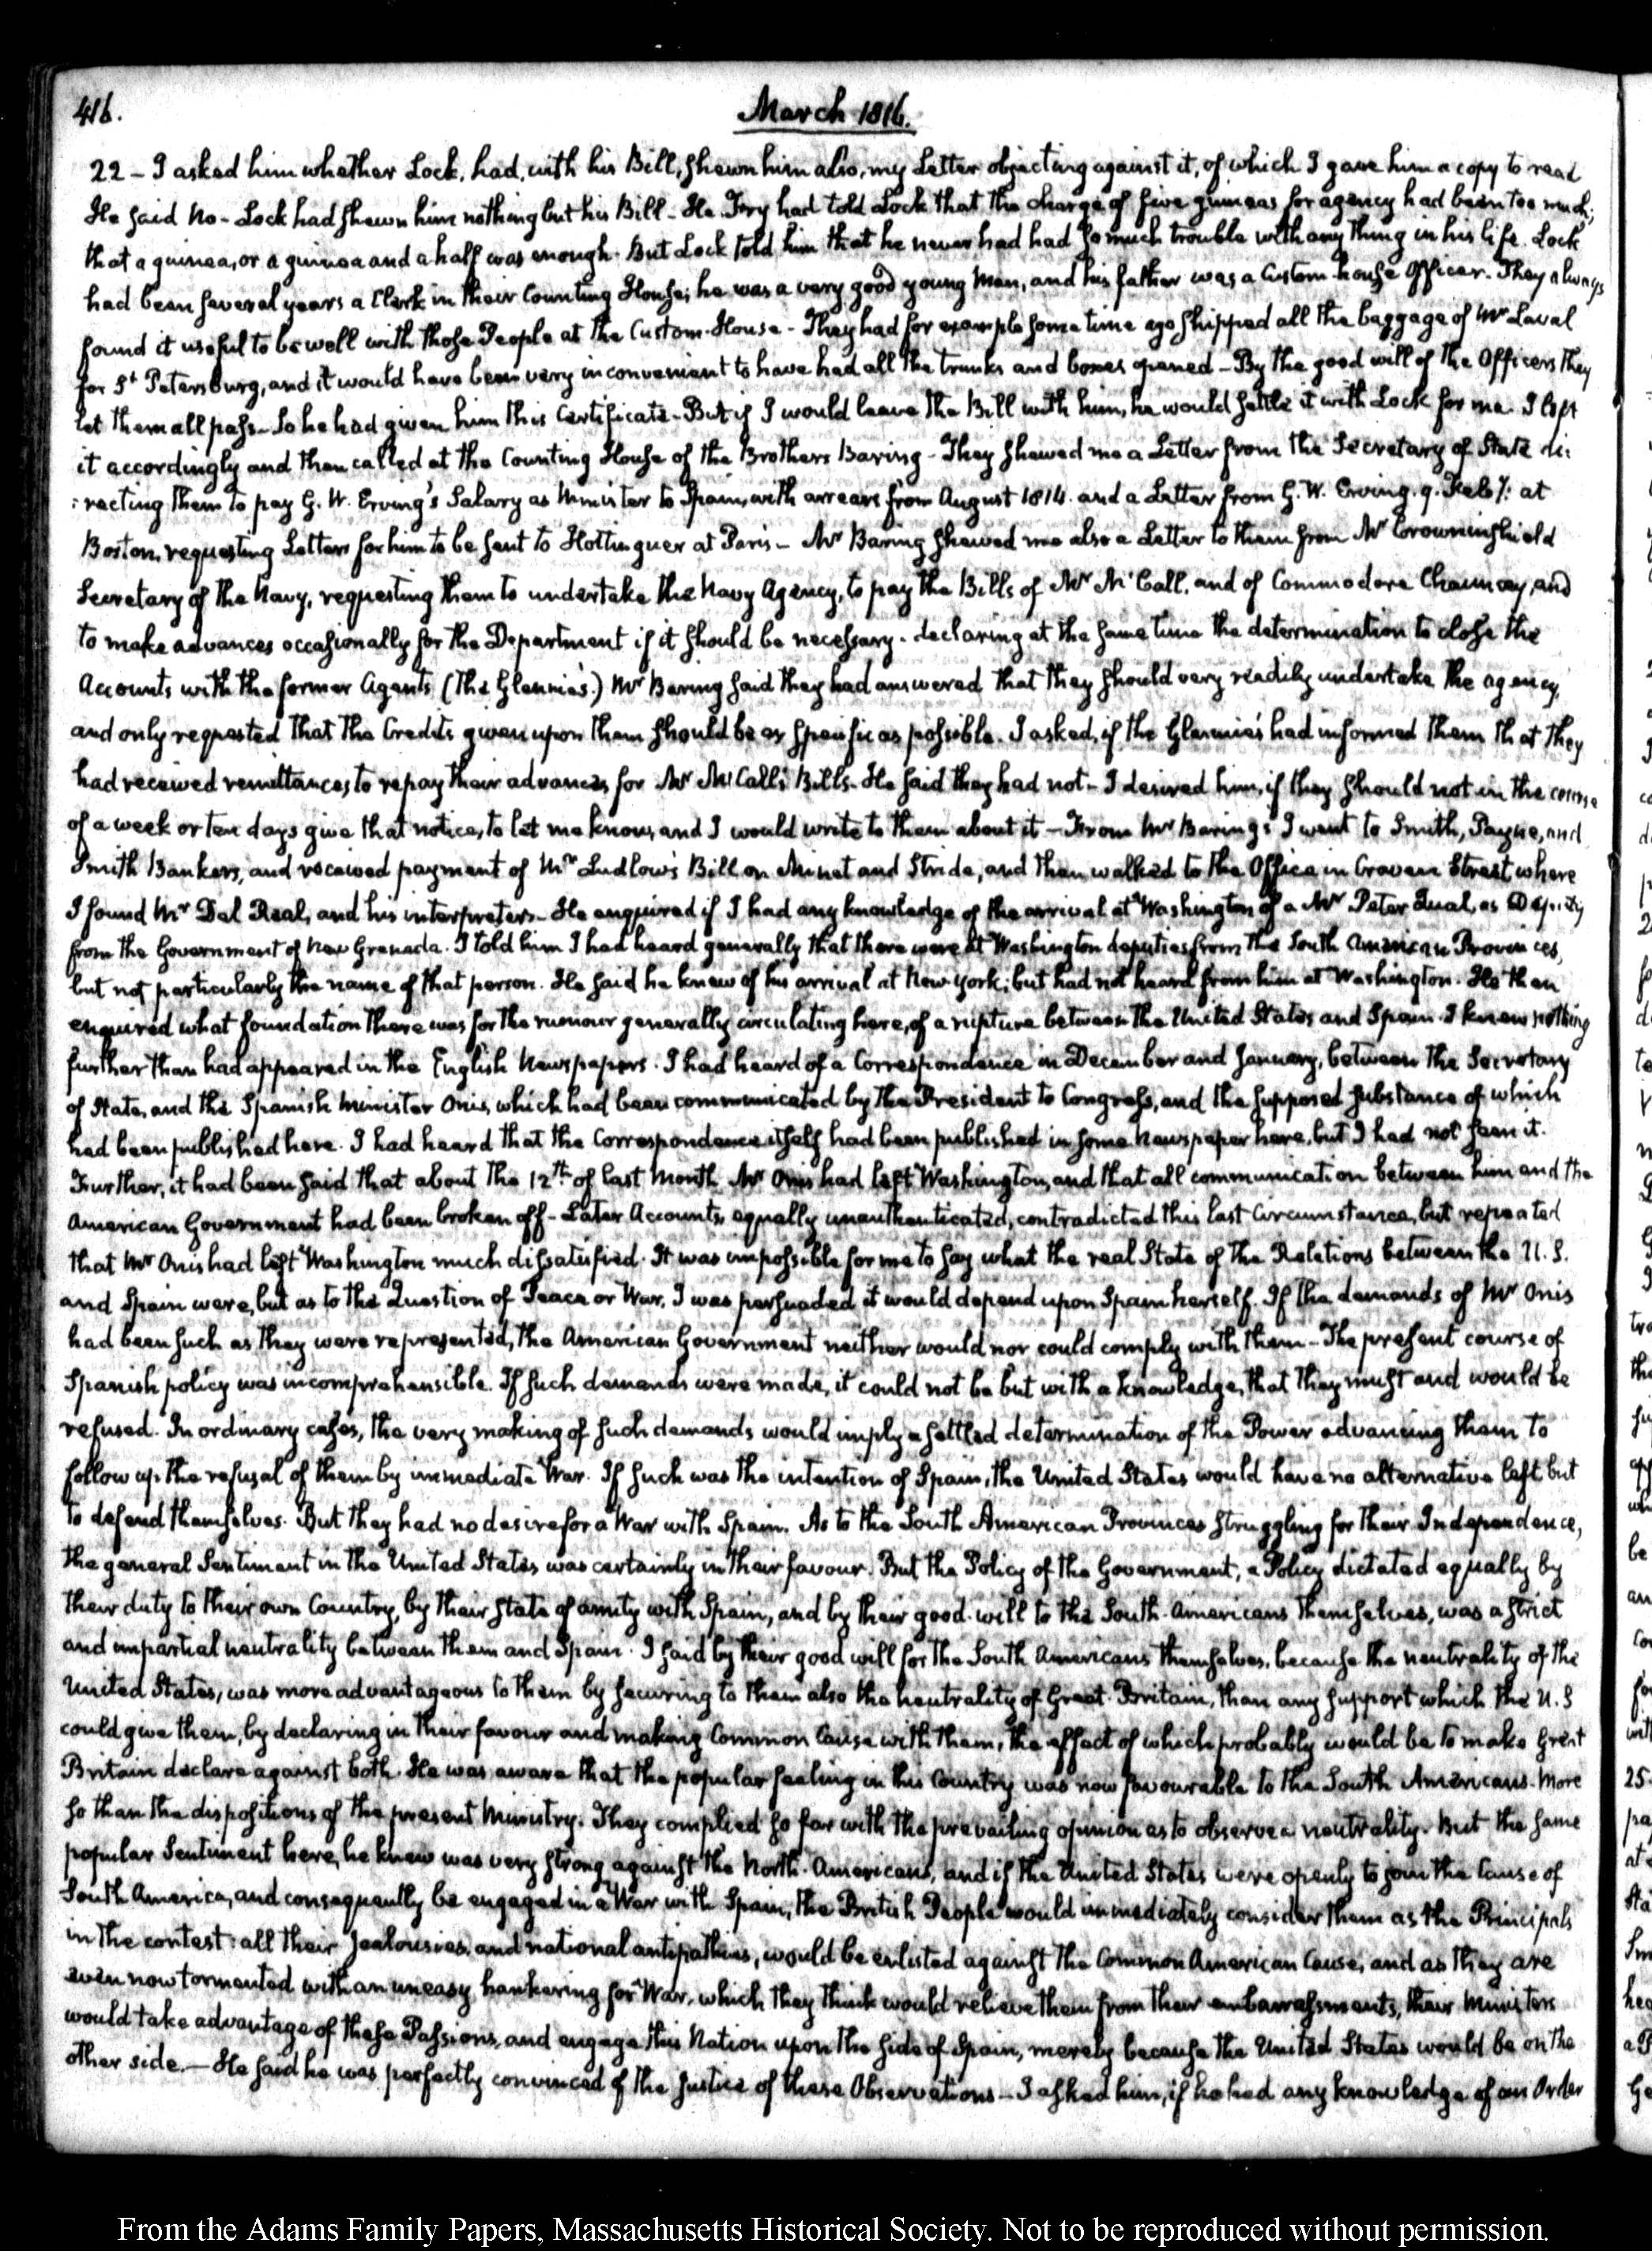 416.
March 1816.
22 – I asked him whether Lock, had, with his Bill, shewn him also, my Letter objecting against it, of which I gave him a copy to read
He said No – Lock had shewn him nothing but his Bill – He Fry had told Lock that the charge of five guineas for agency had been too much;
that a guinea, or a guinea and a half was enough. But Lock told him that he never had had so much trouble with any thing in his life. Lock
had been several years a Clerk in their Counting House; he was a very good young Man, and his father was a Custom-house Officer. They always
found it useful to be well with those People at the Custom-House – They had for example some time ago shipped all the baggage of Mr Laval
for St Petersburg, and it would have been very inconvenient to have had all the trunks and boxes opened – By the good will of the Officers they
let them all pass – So he had given him this Certificate – But if I would leave the Bill with him, he would settle it with Lock for me. I left
it accordingly and then called at the Counting House of the Brothers Baring – They shewed me a Letter from the Secretary of State di:
:recting them to pay G. W. Erving's Salary as Minister to Spain, with arrears from August 1814. and a Letter from G. W. Erving. 9. Feby: at
Boston, requesting Letters for him to be sent to Hottinguer at Paris – Mr Baring shewed me also a Letter to them from Mr Crowninshield
Secretary of the Navy, requesting them to undertake the Navy Agency, to pay the Bills of Mr McCall, and of Commodore Chauncey, and
to make advances occasionally for the Department if it should be necessary – declaring at the same time the determination to close the
Accounts with the former Agents (The Glennie's.) Mr Baring said they had answered that they should very readily undertake the agency,
and only requested that the Credits given upon them should be as specific as possible. I asked, if the Glennie's had informed them that they
had received remittances, to repay their advances for Mr McCall's Bills – He said they had not – I desired him, if they should not in the course
of a week or ten days give that notice, to let me know, and I would write to them about it – From Mr Baring's I went to Smith, Payne, and
Smith Bankers, and received payment of Mr Ludlow's Bill on Minet and Stride, and then walked to the Office in Craven Street where
I found Mr Del Real, and his interpreter. He enquired if I had any knowledge of the arrival at Washington of a Mr Peter Gual, as Deputy
from the Government of New Granada. I told him I had heard generally that there were at Washington deputies from the South American Provinces,
but not particularly the name of that person. He said he knew of his arrival at New-York; but had not heard from him at Washington. He then
enquired what foundation there was for the rumour generally circulating here, of a rupture between the United States and Spain. I knew nothing
further than had appeared in the English Newspapers. I had heard of a Correspondence in December and January, between the Secretary
of State, and the Spanish Minister Onis, which had been communicated by the President to Congress, and the supposed substance of which
had been published here. I had heard that the Correspondence itself had been published in some Newspaper here, but I had not seen it.
Further, it had been said that about the 12th of last Month Mr Onis had left Washington, and that all communication between him and the
American Government had been broken off – Later Accounts, equally unauthenticated, contradicted this last Circumstance, but repeated
that Mr Onis had left Washington much dissatisfied. It was impossible for me to say what the real State of the Relations between the U.S.
and Spain were, but as to the Question of Peace or War, I was persuaded it would depend upon Spain herself. If the demands of Mr Onis
had been such as they were represented, the American Government neither would nor could comply with them – The present course of
Spanish policy was incomprehensible. If such demands were made, it could not be but with a knowledge, that they must and would be
refused. In ordinary cases, the very making of such demands would imply a settled determination of the Power advancing them to
follow up the refusal of them by immediate War. If such was the intention of Spain, the United States would have no alternative left but
to defend themselves. But they had no desire for a War with Spain. As to the South American Provinces struggling for their Independence,
the general Sentiment in the United States was certainly in their favour. But the Policy of the Government, a Policy dictated equally by
their duty to their own Country, by their state of amity with Spain, and by their good-will to the South-Americans themselves, was a strict
and impartial neutrality between them and Spain. I said by their good will for the South Americans themselves, because the neutrality of the
United States, was more advantageous to them by securing to them also the neutrality of Great-Britain, than any support which the U.S
could give them, by declaring in their favour and making Common Cause with them, the effect of which probably would be to make Great
Britain declare against both. He was aware that the popular feeling in this Country was now favourable to the South Americans. More
so than the dispositions of the present Ministry. They complied so far with the prevailing opinion as to observe a neutrality. But the same
popular Sentiment here, he knew was very strong against the North-Americans, and if the United States were openly to join the Cause of
South America, and consequently be engaged in a War with Spain, the British People would immediately consider them as the Principals
in the contest: all their jealousies, and national antipathies, would be enlisted against the Common American Cause, and as they are
even now tormented with an uneasy hankering for War, which they think would relieve them from their embarrassments, their Ministers
would take advantage of these Passions, and engage this Nation upon the side of Spain, merely because the United States would be on the
other side. – He said he was perfectly convinced of the justice of these Observations – I asked him, if he had any knowledge of an Order
From the Adams Family Papers, Massachusetts Historical Society. Not to be reproduced without permission.